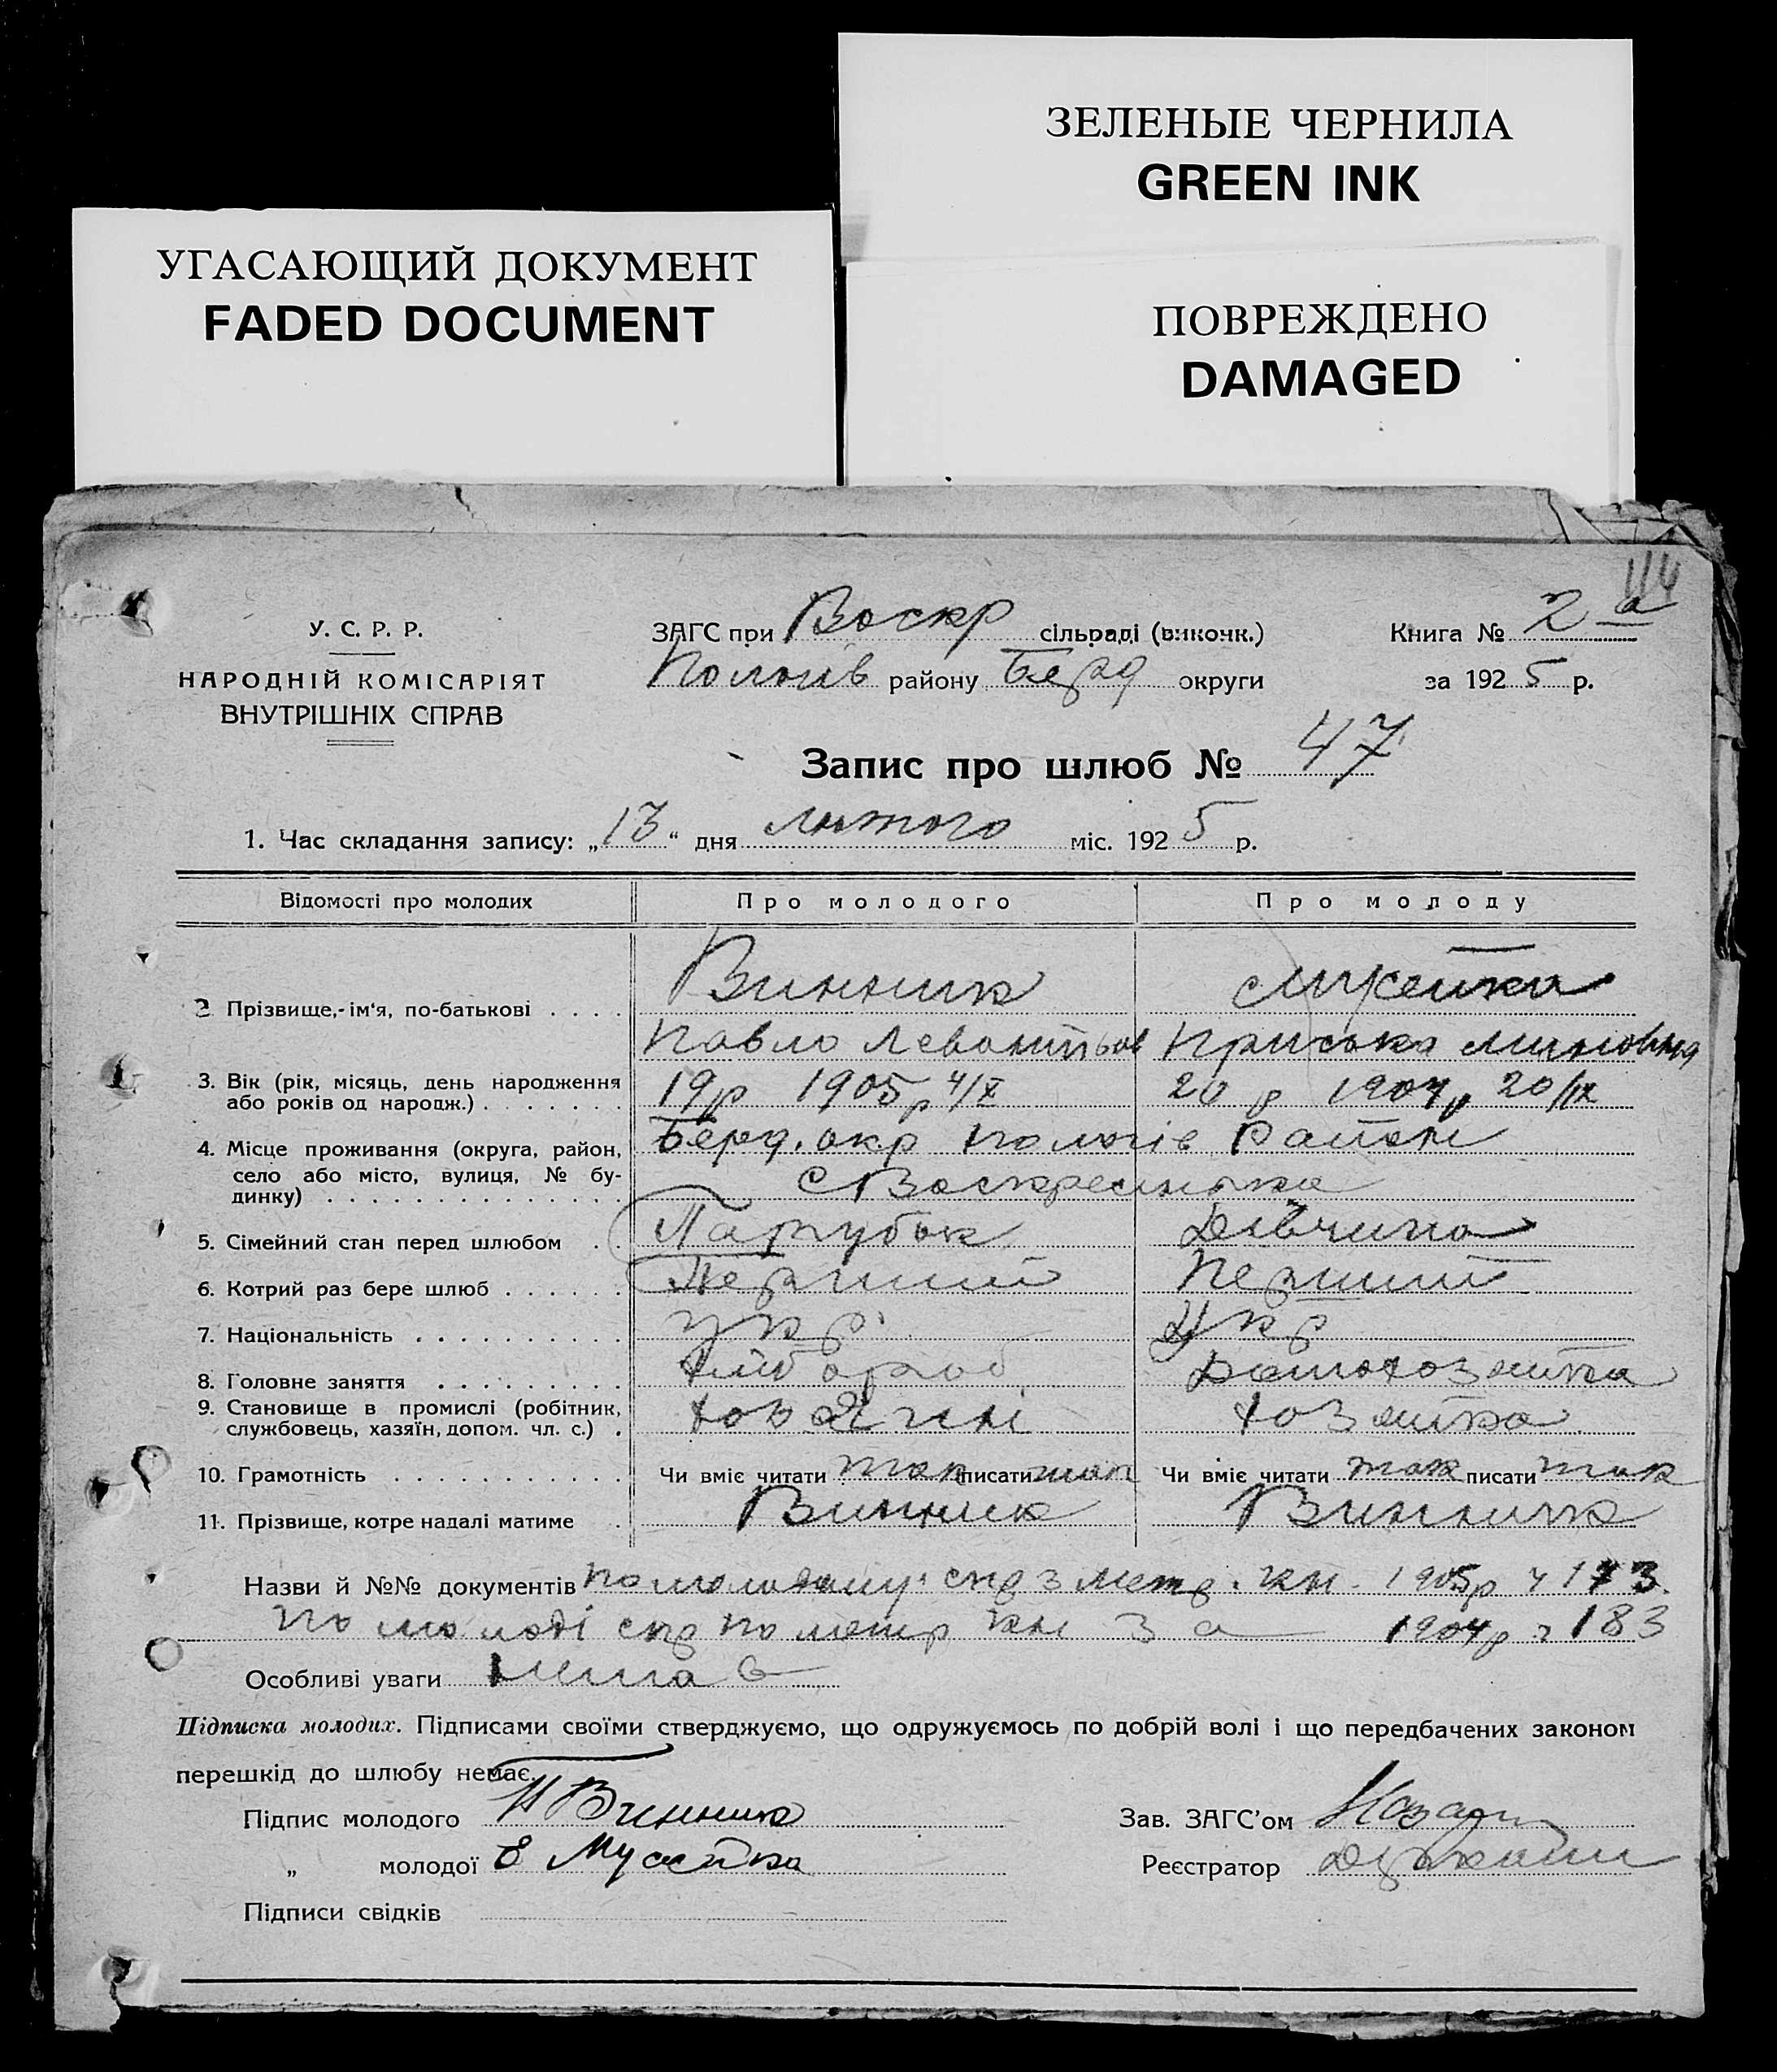 ЗЕЛЕНЫЕ ЧЕРНИЛА
GREEN INK
УГАСАЮЩИЙ ДОКУМЕНТ
FADED DOCUMENT
ПОВРЕЖДЕНО
DAMAGED
114
У. С. Р. Р.
НАРОДНІЙ КОМІСАРІЯТ
ВНУТРІШНІХ СПРАВ
ЗАГС при Воскр сільраді (виконк.)
Пологів району Берд округи
Книга № 2 а
за 1925 р.
Запис про шлюб № 47
1. Час складання запису: „13“ дня лютого міс. 1925 р.
Відомості про молодих Про молодого Про молоду
Винник
2 Прізвище,-ім‘я, по-батькові . . . .
Павло Приська Миновна
3. Вік (рік, місяць, день народження 19р 1905р 4/X 20 р 1904р 20/IX
або років од народж.) . . . . . . .
4. Місце проживання (округа, район, Берд. окр Пологів Район
село або місто, вулиця, № бу-
динку) . . . . . . . . . . . . . . С Воскресинька
5. Сімейний стан перед шлюбом . . Парубок Дівчина
6. Котрий раз бере шлюб . . . . . . Перший Перший
7. Національність . . . . . . . . . . укр Укр
8. Головне заняття . . . . . . . . . хлібороб
9. Становище в промислі (робітник,
службовець, хазяїн, допом. чл. с.) . хозяйка
10. Грамотність . . . . . . . . . . . Чи вміє читати так писати так Чи вміє читати так писати так
11. Прізвище, котре надалі матиме . Винник Винник
Назви й №№ документів по молодому спр з метр. кн. 1905р ч 173.
по молоді спр по метр кн з а 1904р ч 183
Особливі уваги нима є
Підписка молодих. Підписами своїми стверджуємо, що одружуємось по добрій волі і що передбачених законом
перешкід до шлюбу немає.
Підпис молодого П Винник
Зав. ЗАГС’ом
„ молодої Е
Реєстратор
Підписи свідків